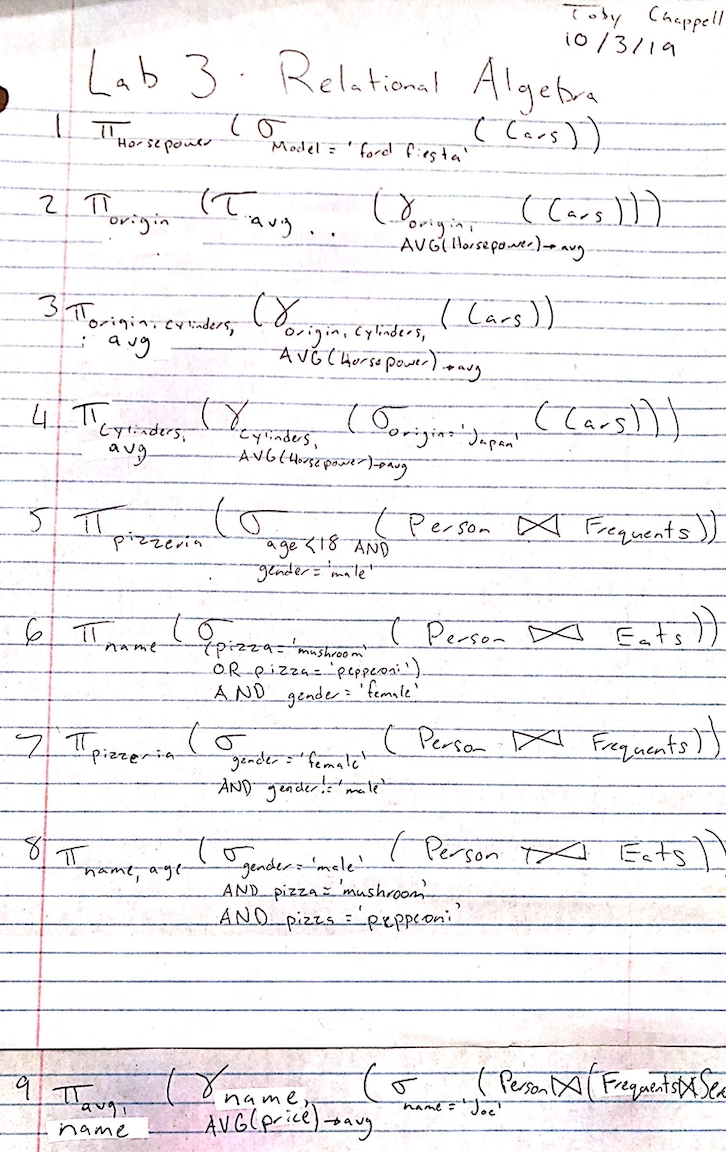 Toby Chappell
10/3/19
Lab 3 - Relational Algebra
1 π Horsepower (σ Model = 'ford fiesta' (Cars))
2 π origin (τ avg (γ origin, AVG(Horsepower)→avg (Cars)))
3 π origin, cylinders, avg (γ origin, cylinders, AVG(Horsepower)→avg (Cars))
4 π cylinders, avg (γ cylinders, AVG(Horsepower)→avg (σ origin='Japan' (Cars)))
5 π pizzeria (σ age<18 AND gender='male' (Person ⋈ Frequents))
6 π name (σ (pizza='mushroom' OR pizza='pepperoni') AND gender='female' (Person ⋈ Eats))
7 π pizzeria (σ gender='female' AND gender!='male' (Person ⋈ Frequents))
8 π name, age (σ gender='male' AND pizza='mushroom' AND pizza='pepperoni' (Person ⋈ Eats))
9 π avg, name (γ name, AVG(price)→avg (σ name='Joe' (Person ⋈ (Frequents ⋈